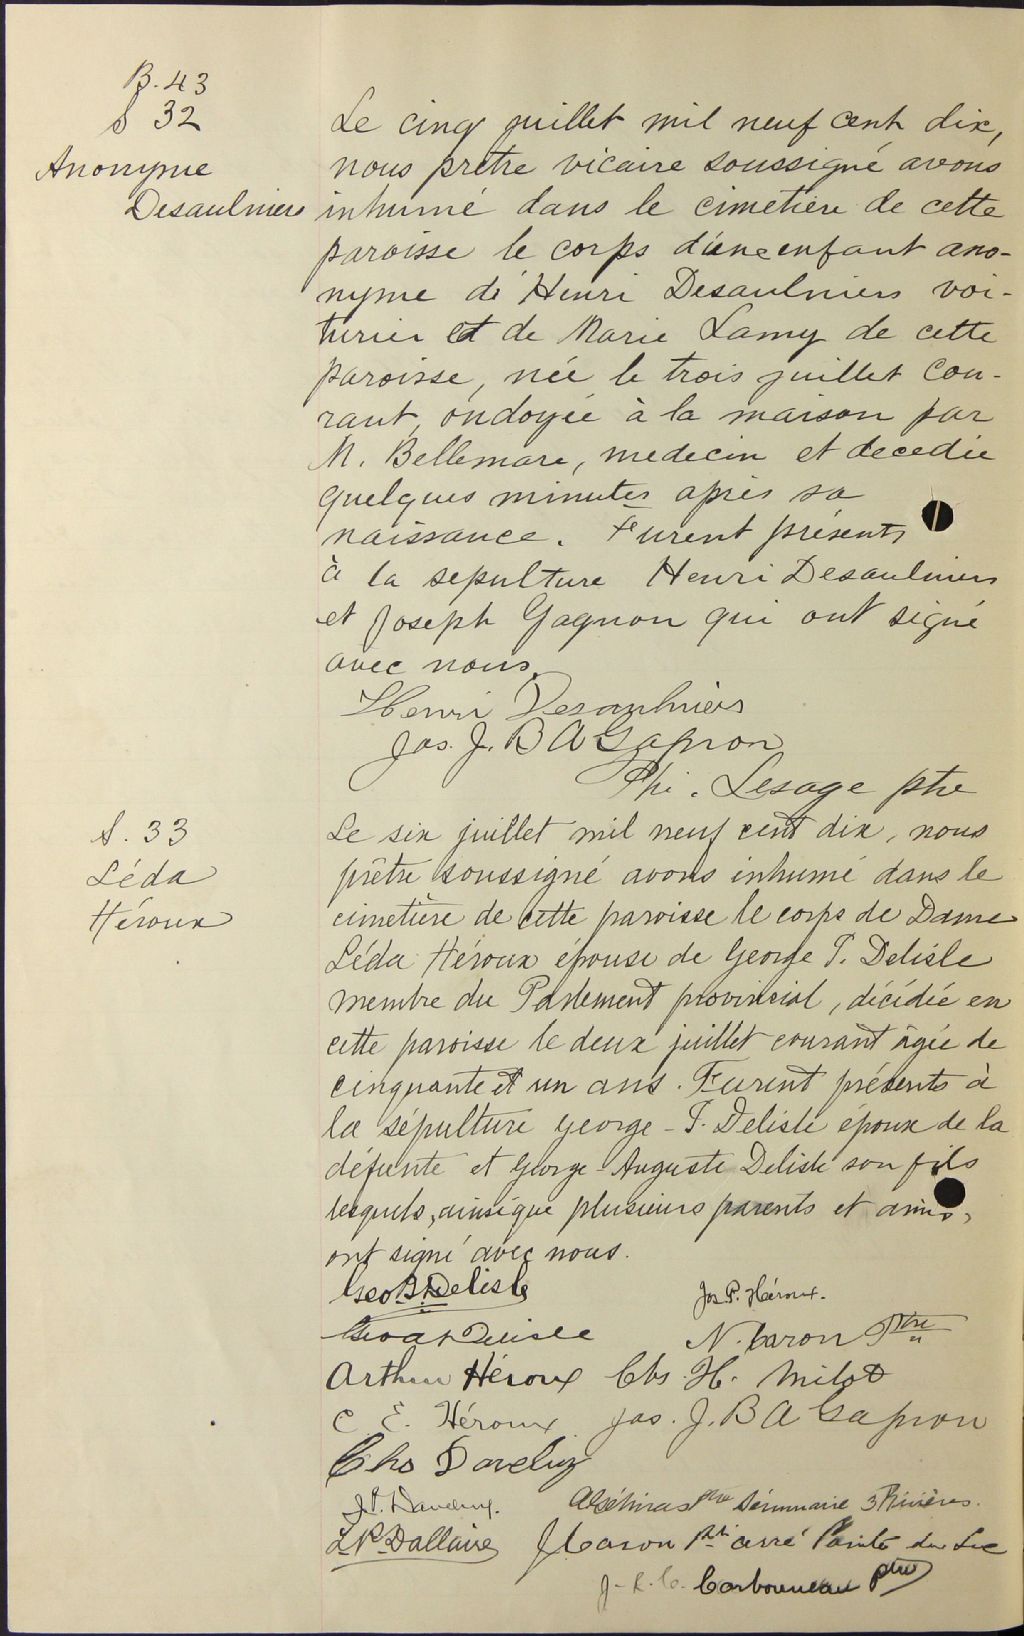 B. 43
S 32
Anonyme
Desaulniers
Le cinq juillet mil neuf cent dix,
nous prêtre vicaire soussigné avons
inhumé dans le cimetière de cette
paroisse le corps d'une enfant ano-
nyme de Henri Desaulniers voi-
turier et de Marie Lamy de cette
paroisse, née le trois juillet cou-
rant, ondoyée à la maison par
M. Bellemare, medecin et decedée
quelques minutes après sa
naissance. Furent présents
à la sepulture Henri Desaulniers
et Joseph Gagnon qui ont signé
avec nous.
Henri Desaulniers
Jos. J. B A Gagnon
Phi. Lesage ptre
S. 33
Léda
Héroux
Le six juillet mil neuf cent dix, nous
prêtre soussigné avons inhumé dans le
cimetière de cette paroisse le corps de Dame
Léda Héroux épouse de George T. Delisle
membre du Parlement provincial, décédée en
cette paroisse le deux juillet courant âgée de
cinquante et un ans. Furent présents à
la sépulture George - T. Delisle époux de la
défunte et George-Auguste Delisle son fils
lesquels, ainsi que plusieurs parents et amis,
ont signé avec nous.
Geo Delisle
Jos P. Héroux.
Geo A Delisle
N. Caron Ptre
Arthur Héroux Chs. H. Milot
C E. Héroux Jos. J. B A Gagnon
Chs Daveluy
J. Daveluy. ptre Séminaire 3 Rivières.
L. P. Dallaire J Caron Ptre curé Pointe du Lac
Carbonneau ptre